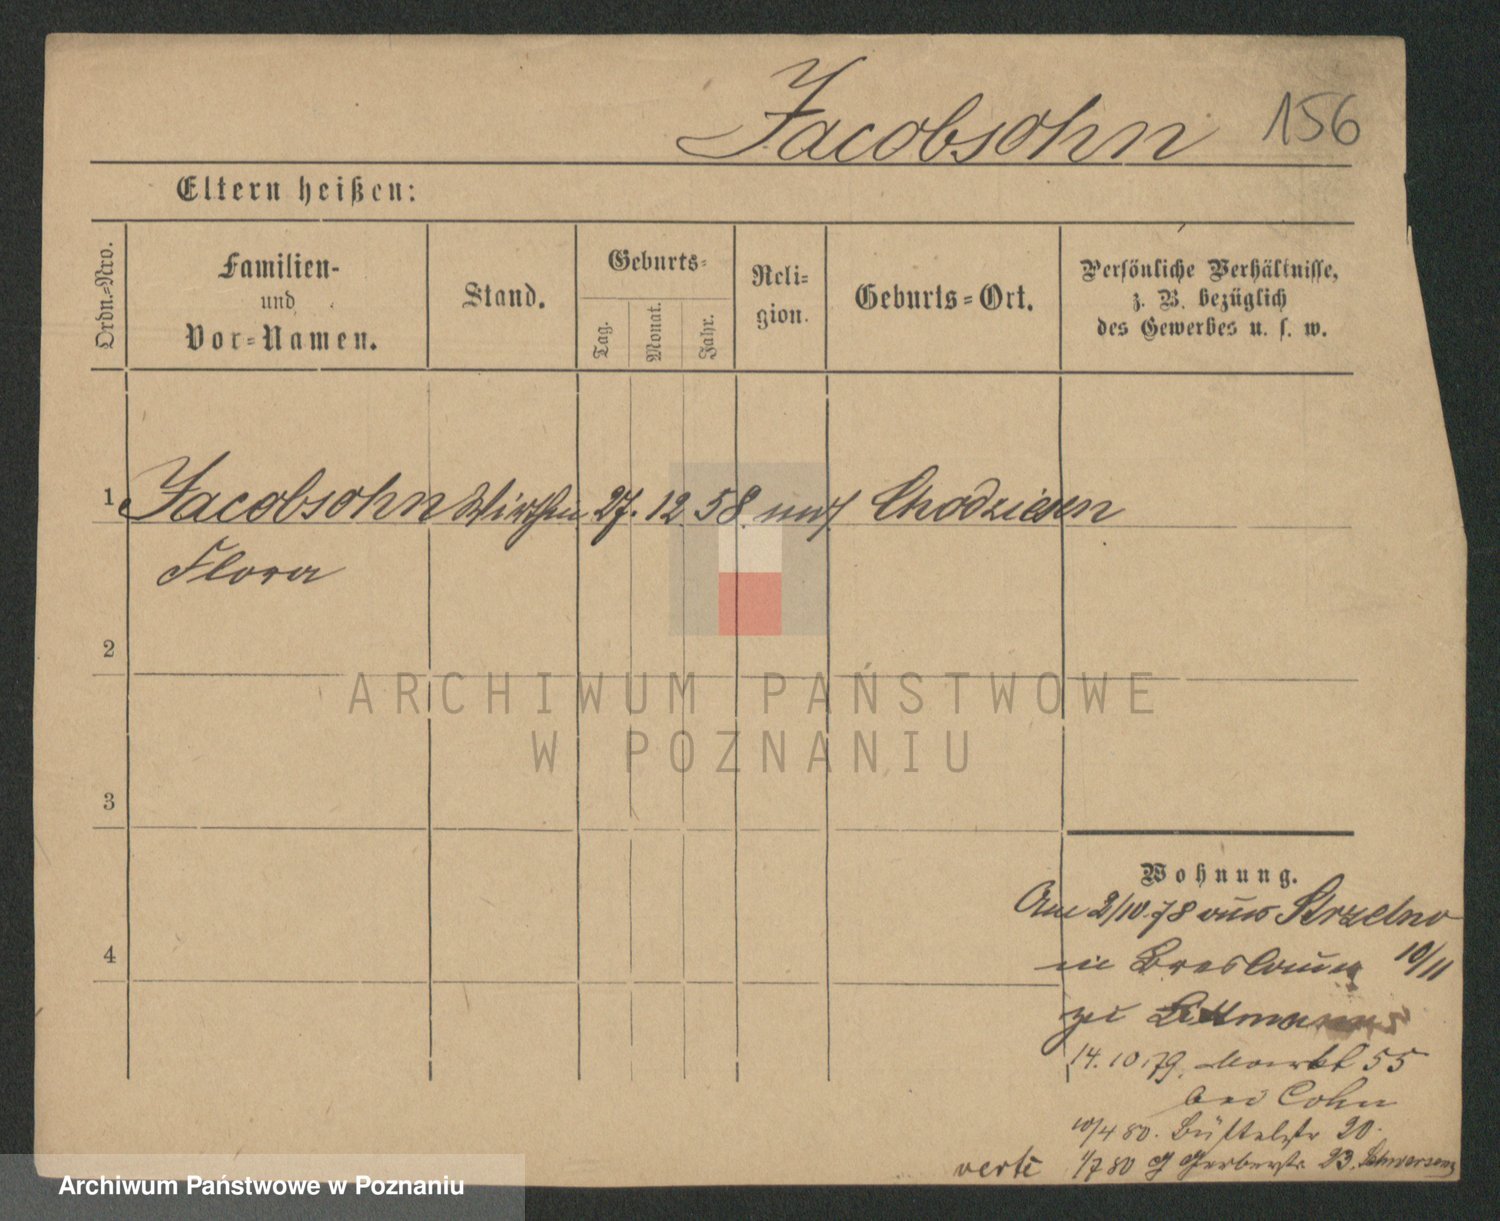 Jacobsohn 156
Eltern heißen:
Ordn.-Nro.
Familien-
und
Vor-Namen.
Stand.
Geburts-
Tag.
Monat.
Jahr.
Reli-
gion.
Geburts-Ort.
Persönliche Verhältnisse,
z. B. bezüglich
des Gewerbes u. s. w.
1 Jacobsohn Wirthin 27. 12 58 mos Chodziesen
Flora
2
ARCHIWUM PAŃSTWOWE
W POZNANIU
3
Wohnung.
Am 2/10.78 aus Strzelno
in Breslauer 10/11
4
zu Littmann
14.10.79. Markt 55
bei Cohn
10/4 80. Büttelstr 20.
verte 1/7 80 Gerberstr. 23. Schwersenz
Archiwum Państwowe w Poznaniu